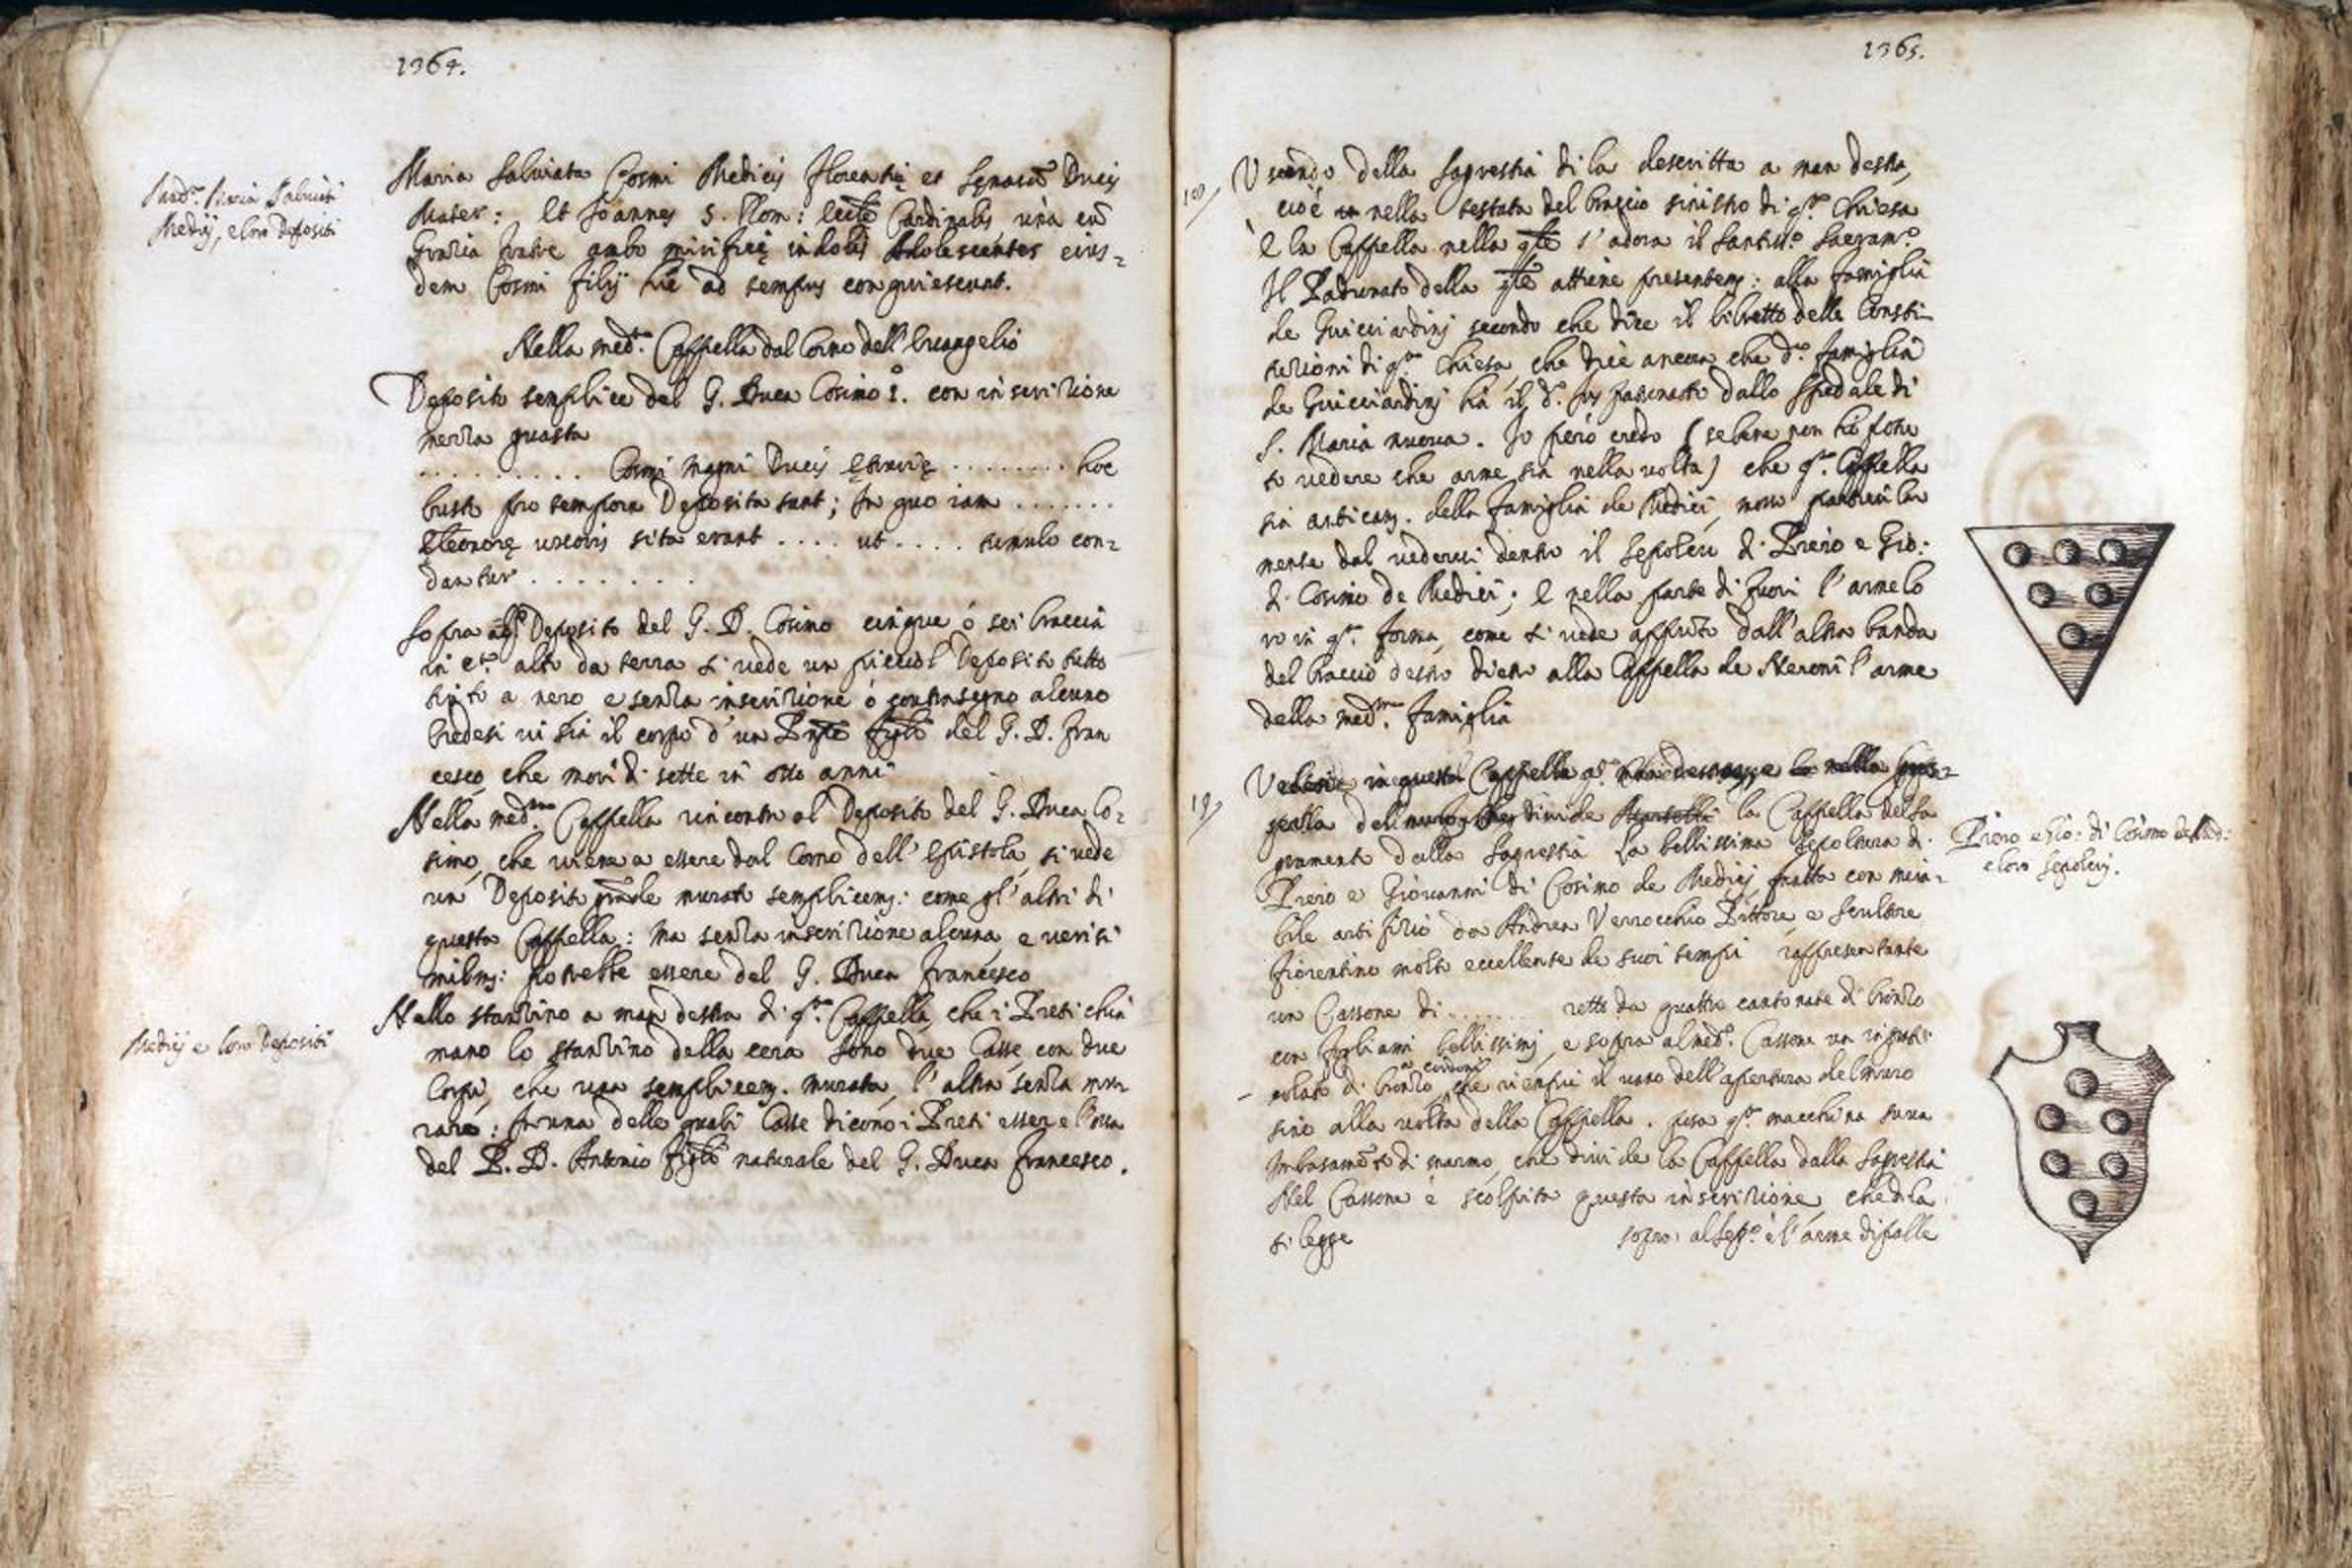 1364.
Maria Salviata Cosmi Medicis Florentię et Senarū Ducis
Mater: Et Joannes S. Rom: Eccłę Cardinalis, unà cū
Grazia fratre ambo mirificę indolis Adolescentes eius-
dem Cosmi filij hic ad tempus conquiescunt.
Medicij, e loro Depositi
Nella med.ª Cappella dal Corno dell'Evangelio
Deposito semplice del G. Duca Cosimo I. con inscrizione
mezza guasta
.......... Cosmi Magni Ducis Etrurię ........ hoc
busto pro tempore Deposita sunt; In quo iam .......
Eleonorę uxoris sita erant .... ut .... tumulo con-
dantur ........
Sopra Deposito del G. D. Cosimo cinque ò sei braccia
in c.ª alto da terra si vede un picciol Deposito tutto
tinto a nero e senza inscrizione ò contrasegno alcuno
Credesi vi sia il corpo d'un figlo del G. D. Fran
cesco, che morì di sette in otto anni
Nella med.ma Cappella rincontro al Deposito del G. Duca Co-
simo, che viene a essere dal Corno dell'Epistola, si vede
un Deposito grade murato semplicem: come gl'altri di
questa Cappella: ma senza inscrizione alcuna, e verisi
milm: potrebbe essere del G. Duca Francesco
Nello stanzino a man destra di q.ta Cappella, che i Preti chia
mano lo stanzino della cera sono due Casse con due
Corpi, che una semplicem. murata, l'altra senza mu-
rare: In una delle quali Casse dicono i Preti essere l'ossa
del P. D. Antonio figlo naturale del G. Duca Francesco.
Medicij e loro Depositi
1365.
18/
Uscendo della Sagrestia di la descritta a man destra,
cioè nella testata del braccio sinistro di q.ta Chiesa
è la Cappella nella qle s'adora il Santiss.º Sacram.º
Il Padronato della qle attiene presentem: alla famiglia
de Guicciardinj secondo che dice il libretto delle Consti-
tuzioni di q.ta Chiesa, che dice ancora che d.ª famiglia
de Guicciardinj hà il d.º Jus padronato dallo Spedale di
S. Maria nuova. Io però credo (sebene non hò potu
to vedere che arme sia nella volta) che q.ta Cappella
sia anticam. della famiglia de Medici, mosso particolar
mente dal vedervi dentro il Sepolcro di Piero e Gio:
di Cosimo de Medici; e nella parte di fuori l'arme lo
ro in q.ta forma, come si vede appunto dall'altra banda
del braccio destro dietro alla Cappella de Neroni l'arme
della med.ma famiglia
19/
Vedesi in questa Cappella
dell muro che divide la Cappella del Sa
gramento dalla Sagrestia la bellissima Sepoltura di
Piero e Giovanni di Cosimo de Medicj, fatta con mira-
bile artifizio da Andrea Verrocchio Pittore, e Scultore
fiorentino molto eccellente de suoi tempi rappresentante
un Cassone di ....... retto da quattro cantonate di bronzo
con fogliami bellissimj, e sopra al med.º Cassone un
colato di bronzo a cordoni, che riempie il vano dell'apertura del muro
sino alla volta della Cappella. posa q.ta macchina sur un
Imbasamēto di marmo, che divide la Cappella dalla Sagrestia
Nel Cassone è scolpita questa inscrizione, che di la
si legge sopra al Sep.º è l'arme di palle
Piero e Gio: di Cosimo de Med:
e loro Sepolcrj.